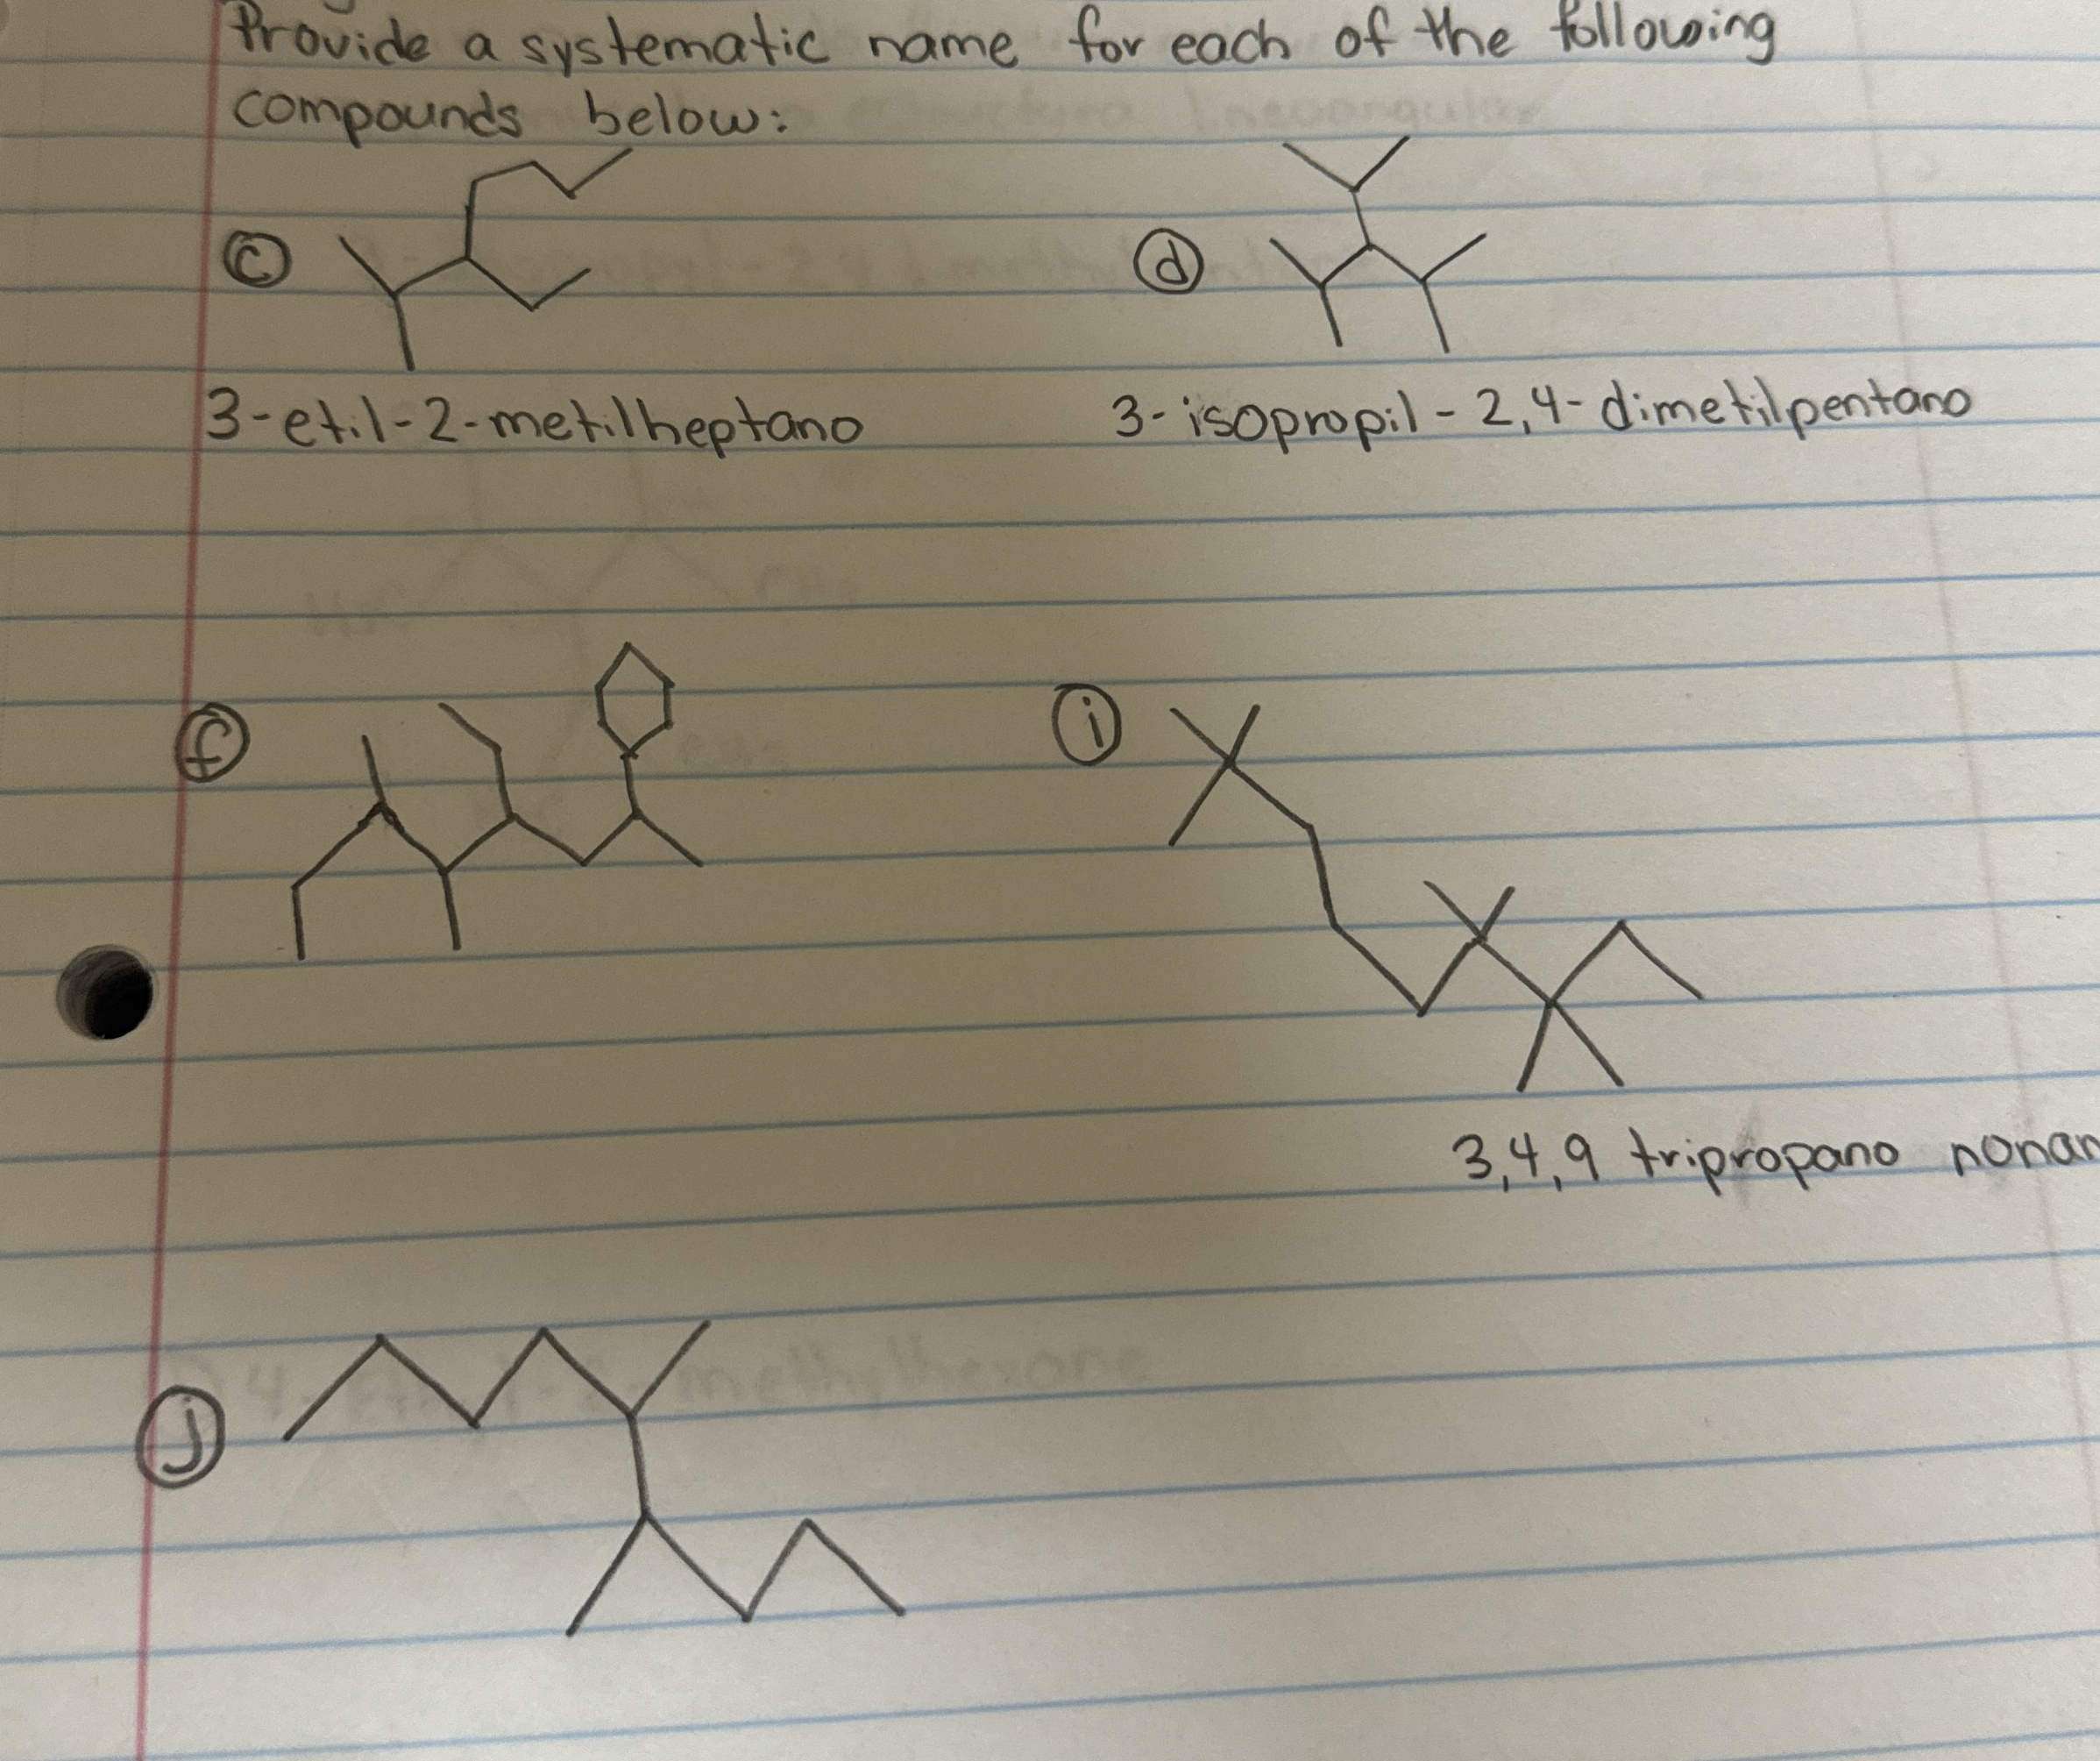 Provide a systematic name for each of the following
compounds below:
c
d
3-etil-2-metilheptano
3-isopropil-2,4-dimetilpentano
f
i
3,4,9 tripropano nonan
j